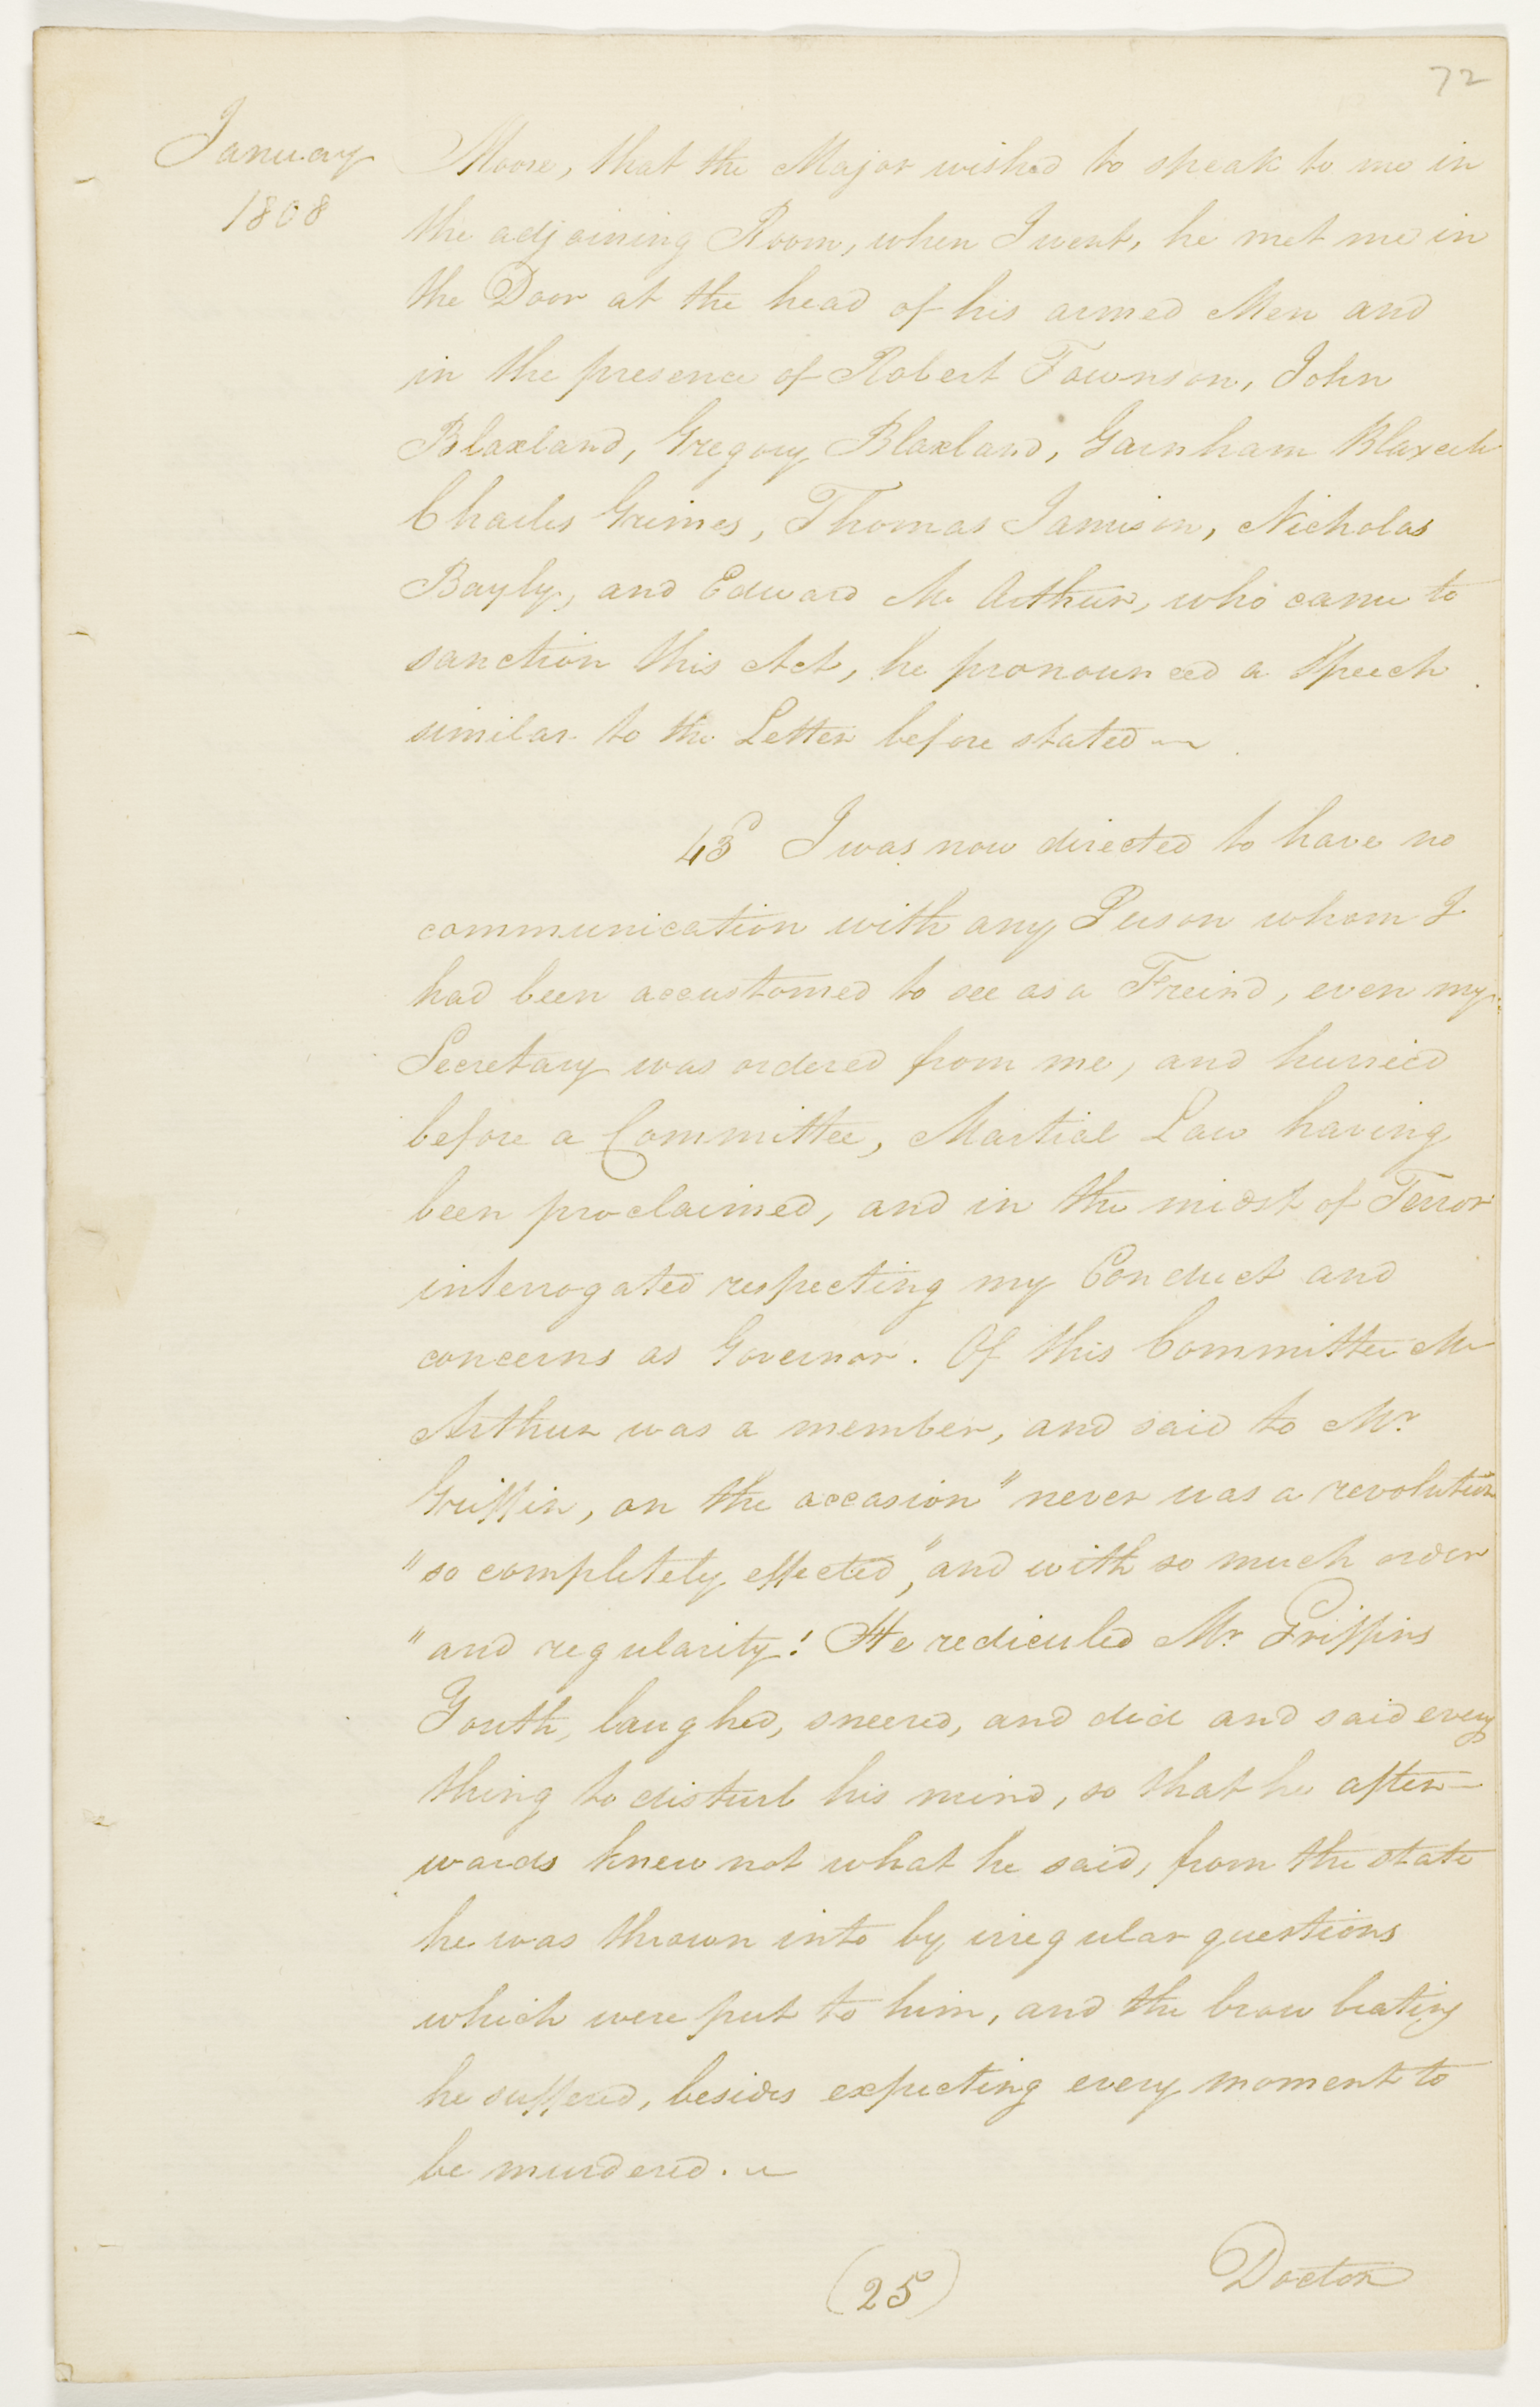 72
January
1808
Moore, that the Major wished to speak to me in
the adjoining Room, when I went, he met me in
the Door at the head of his armed Men and
in the presence of Robert Townson, John
Blaxland, Gregory Blaxland, Garnham Blaxcell
Charles Grimes, Thomas Jamison, Nicholas
Bayly, and Edward Mc Arthur, who came to
sanction this Act, he pronounced a Speech
similar to the Letter before stated ~
43d I was now directed to have no
communication with any Person whom I
had been accustomed to see as a Freind, even my
Secretary was ordered from me, and hurried
before a Committee, Martial Law having
been proclaimed, and in the midst of Terror
interrogated respecting my Conduct and
concerns as Governor. Of this Committee Mc
Arthur was a member, and said to Mr.
Griffin, on the occasion "never was a revolution
"so completely effected," and with so much order
"and regularity! He rediculed Mr. Griffins
Youth, laughed, sneered, and did and said every
thing to disturb his mind, so that he after-
wards knew not what he said, from the state
he was thrown into by irregular questions
which were put to him, and the brow beating
he suffered, besides expecting every moment to
be murdered. ~
(25)
Doctor